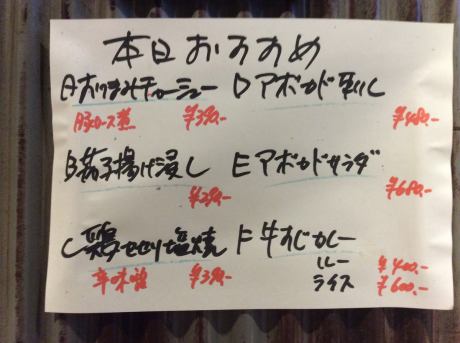 本日おすすめ
Aおつまみチャーシュー
豚ロース煮 ¥390.-
B茄子揚げ浸し
¥390.-
C鶏せせり塩焼
辛味噌 ¥390.-
Dアボカド刺し
¥480.-
Eアボカドサラダ
¥680.-
F牛すじカレー
ルー ¥400.-
ライス ¥600.-